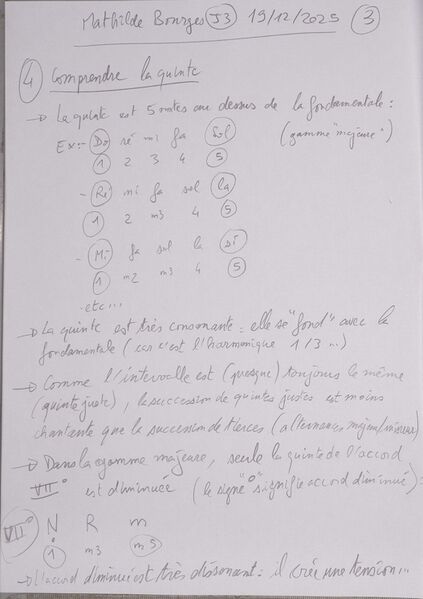 Mathilde Bourges J3 19/12/2025 3
4 Comprendre la quinte
→ La quinte est 5 notes au dessus de la fondamentale :
Ex :- Do ré mi fa Sol (gamme "majeure")
1 2 3 4 5
- Ré mi fa sol la
1 2 m3 4 5
- Mi fa sol la si
1 m2 m3 4 5
- etc...
→ La quinte est très consonante : elle se "fond" avec la
fondamentale (car c'est l'harmonique 1/3 ...)
→ Comme l'intervalle est (presque) toujours le même
(quinte juste), la succession de quintes justes est moins
chantante que la succession de tierces (alternances majeur/mineure)
→ Dans la gamme majeure, seule la quinte de l'accord
VII° est diminuée (le signe "o" signifie accord diminué) :
VII° N R m
1 m3 m5
→ L'accord diminué est très dissonant : il crée une tension...